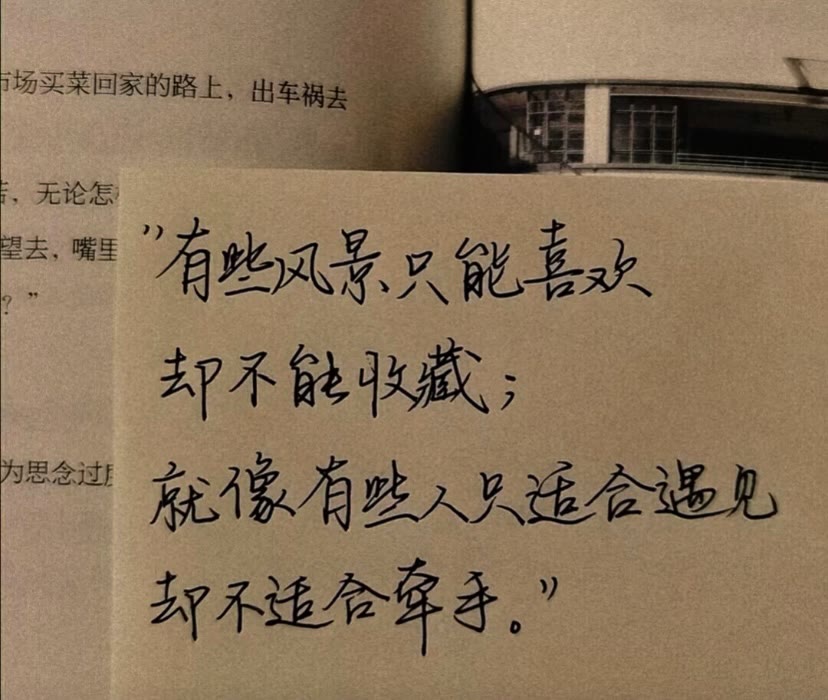 市场买菜回家的路上，出车祸去
，无论怎
望去，嘴里
？”
为思念过度
"有些风景只能喜欢
却不能收藏；
就像有些人只适合遇见
却不适合牵手。"